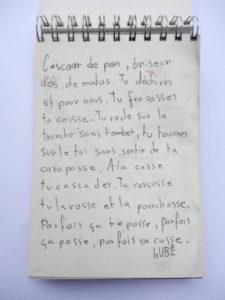 Cascaar de pan, briseur
d'os, de matos. Tu déchires
et pour nous. Tu fracasses
ta caisse. Tu roule sur la
tranche sans tomber, tu tournes
sur le toi sans sortir de ta
carapasse. A la casse
tu cascades. Ta carcasse
tu la rosse et la pourchasse.
Parfois ça te passe, parfois
ça passe, parfois ça casse.
hUBE